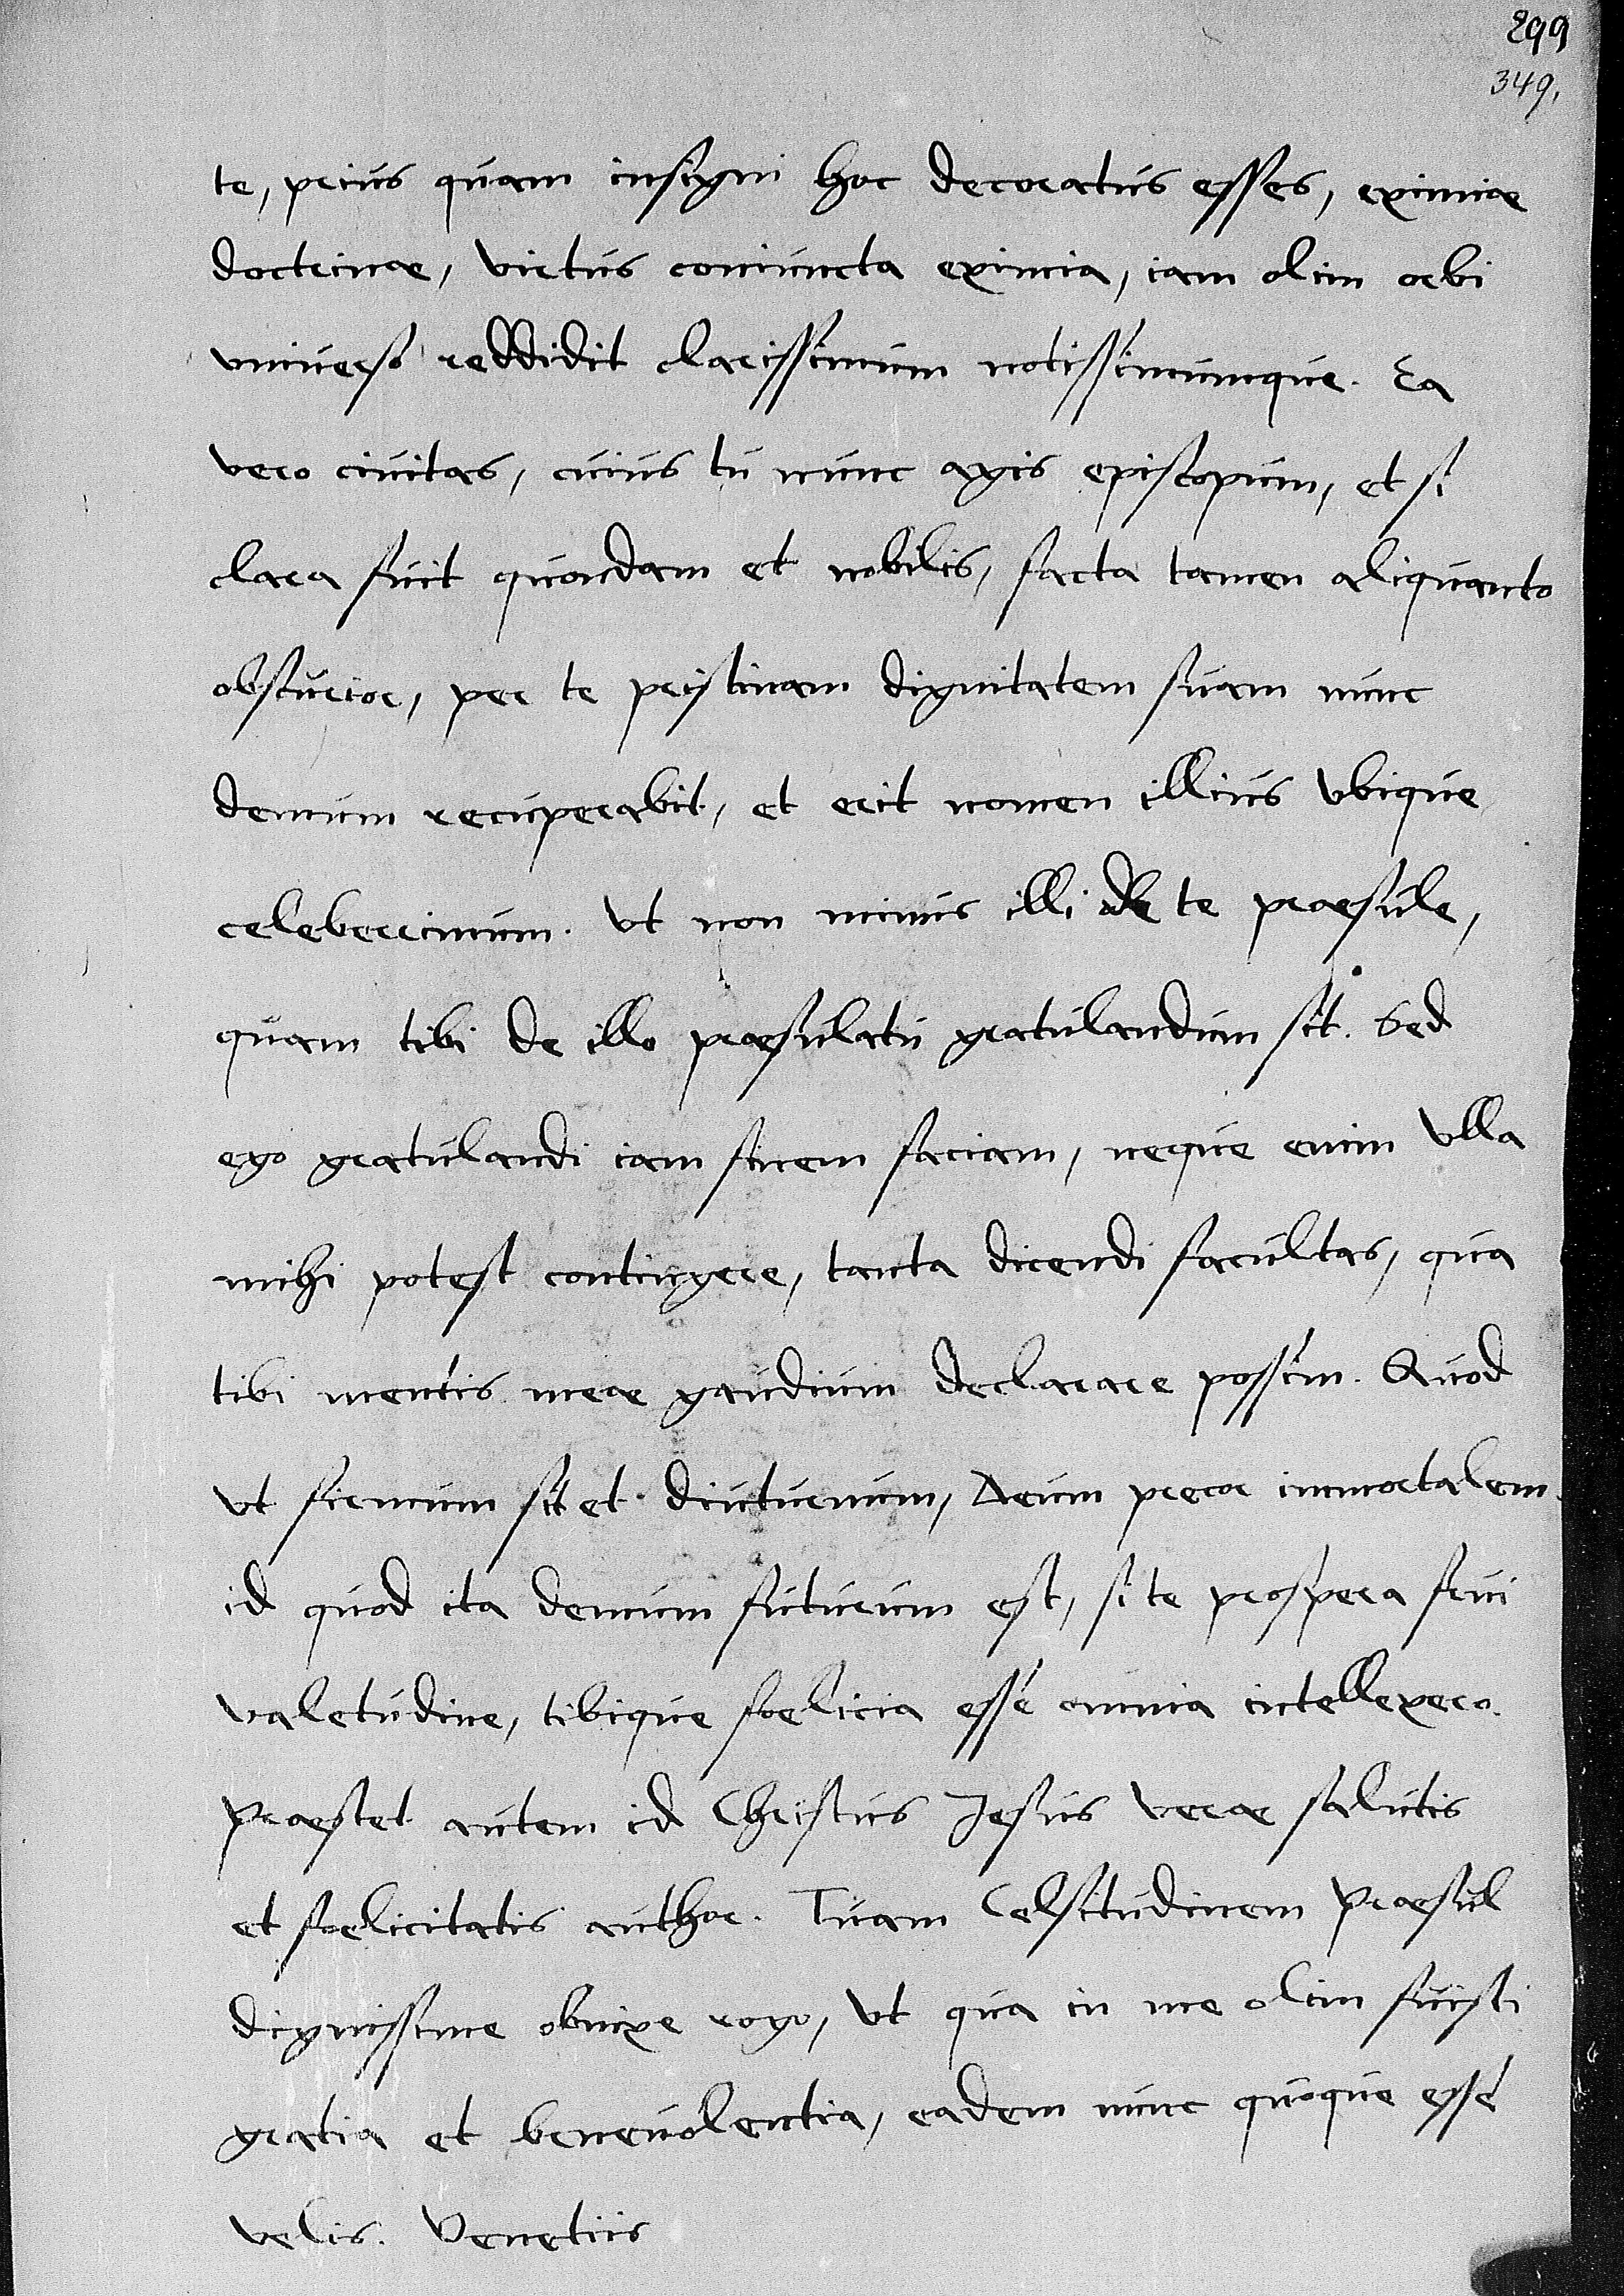 299
349.
te, prius quam insigni hoc decoratus esses, eximiae
doctrinae, virtus coniuncta eximia, iam olim orbi
universo reddidit clarissimum notissimumque. Ea
vero civitas, cuius tu nunc agis episcopum, et si
clara fuit quondam et nobilis, facta tamen aliquanto
obscurior, per te pristinam dignitatem suam nunc
demum recuperabit, et erit nomen illius ubique
celeberrimum. Ut non minus illi de te praesule,
quam tibi de illo praesulatu gratulandum sit. Sed
ego gratulandi iam finem faciam, neque enim ulla
mihi potest contingere, tanta dicendi facultas, qua
tibi mentis meae gaudium declarare possim. Quod
ut firmum sit et diuturnum, Deum precor immortalem.
id quod ita demum futurum est, si te prospera frui
valetudine, tibique foelicia esse omnia intellexero.
Praestet autem id Christus Jesus verae salutis
et foelicitatis author. Tuam Celsitudinem Praesul
dignissime obnixe rogo, ut qua in me olim fuisti
gratia et benevolentia, eadem nunc quoque esse
velis. Venetiis